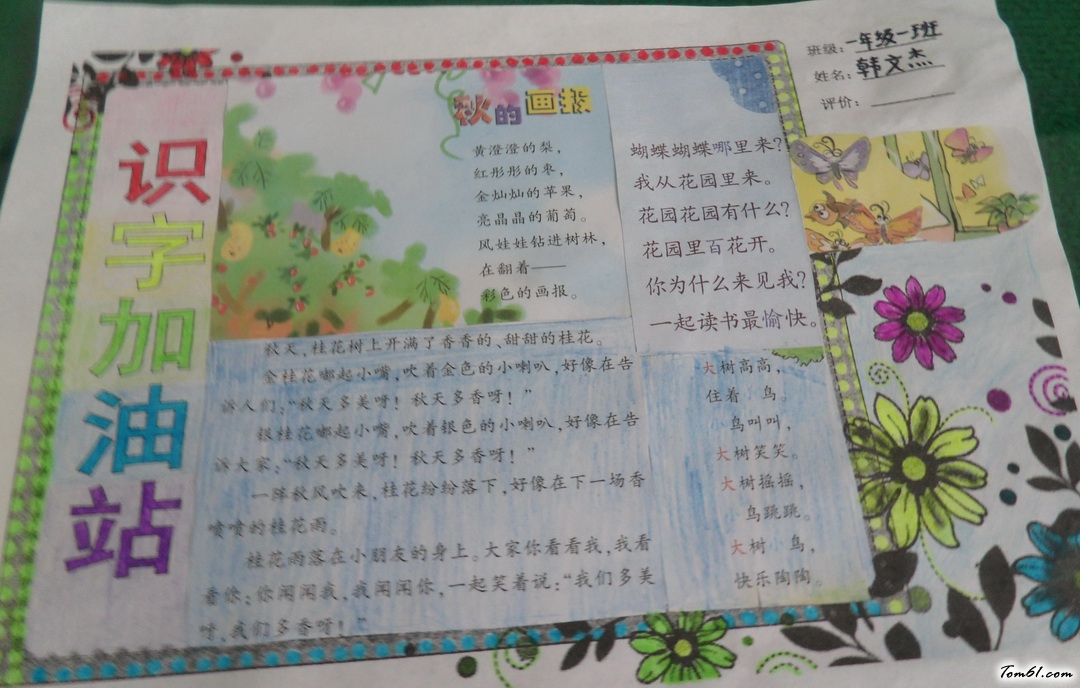 班级:一年级一班
姓名:韩文杰
评价:
识字加油站
秋的画报
黄澄澄的梨,
红彤彤的枣,
金灿灿的苹果,
亮晶晶的葡萄。
风娃娃钻进树林,
在翻着——
彩色的画报。
蝴蝶蝴蝶哪里来?
我从花园里来。
花园花园有什么?
花园里百花开。
你为什么来见我?
一起读书最愉快。
秋天,桂花树上开满了香香的、甜甜的桂花。
金桂花嘟起小嘴,吹着金色的小喇叭,好像在告
诉人们:“秋天多美呀!秋天多香呀!”
银桂花嘟起小嘴,吹着银色的小喇叭,好像在告
诉大家:“秋天多美呀!秋天多香呀!”
一阵秋风吹来,桂花纷纷落下,好像在下一场香
喷喷的桂花雨。
桂花雨落在小朋友的身上。大家你看看我,我看
看你;你闻闻我,我闻闻你,一起笑着说:“我们多美
呀,我们多香呀!”
大树高高,
住着小鸟。
小鸟叫叫,
大树笑笑。
大树摇摇,
小鸟跳跳。
大树小鸟,
快乐陶陶。
Tom61.com